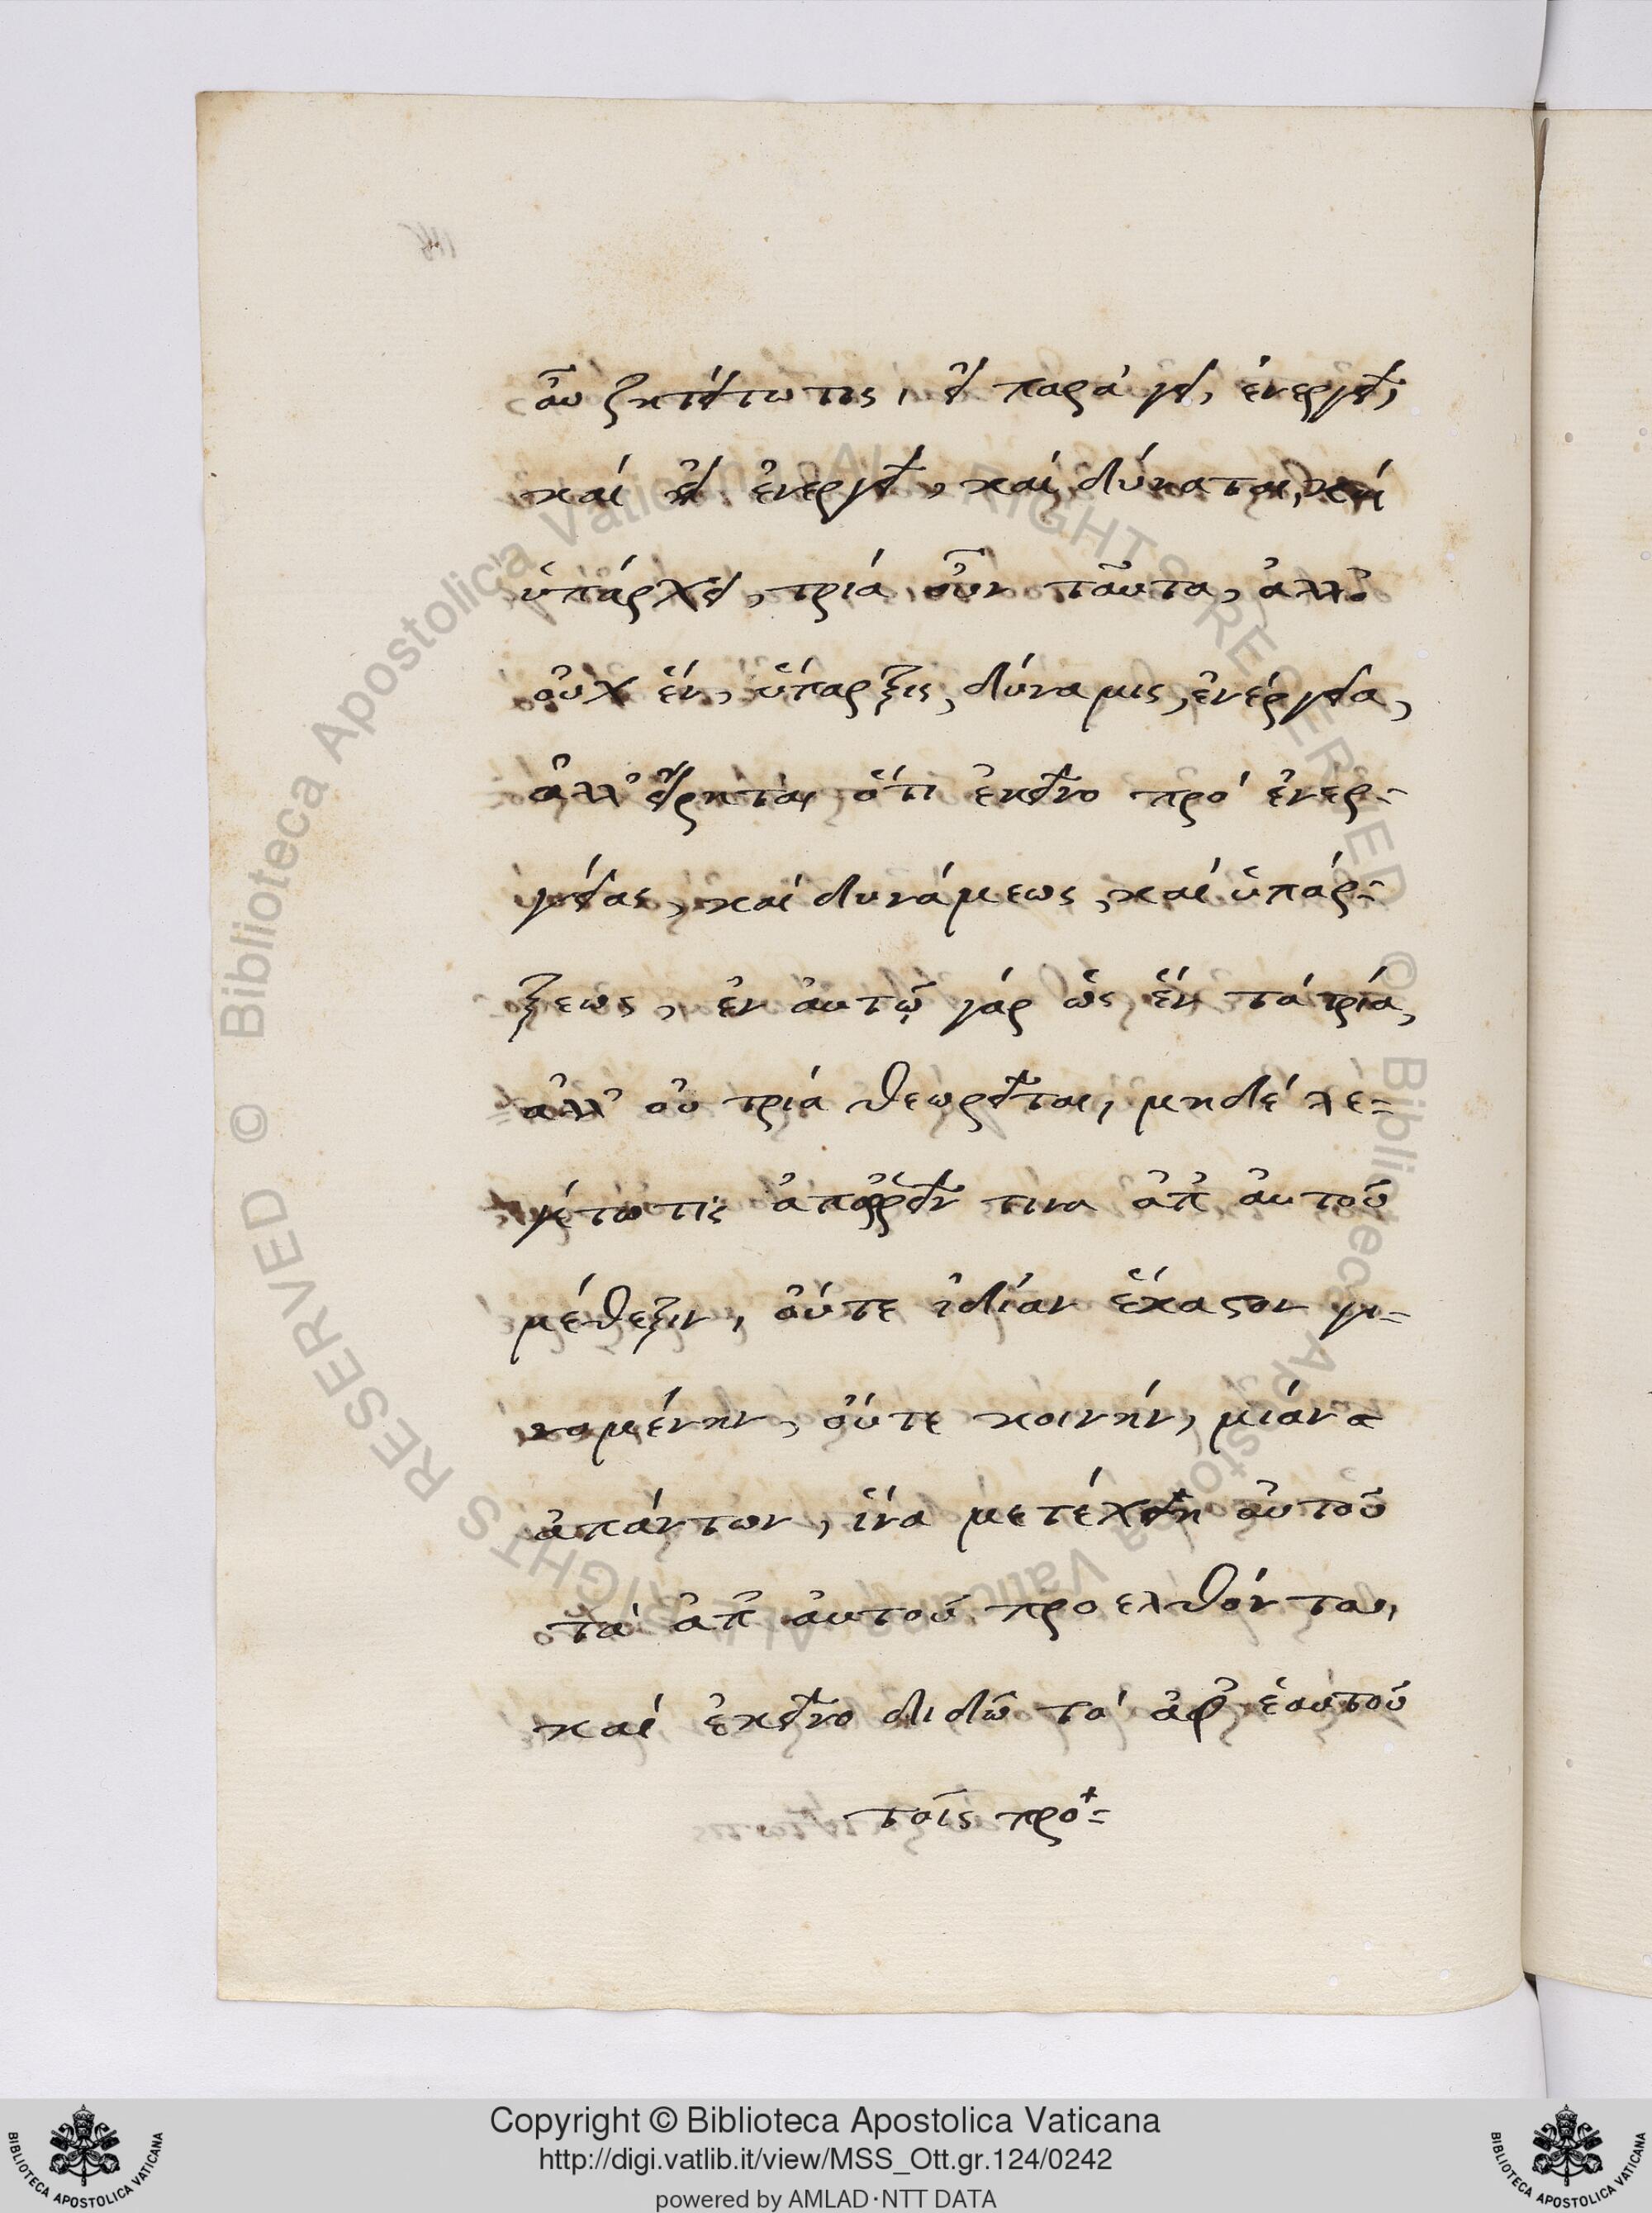 οὖ ζητείτω τις, εἰ παράγει, ἐνεργεῖ,
καὶ εἰ ἐνεργεῖ, καὶ δύναται, καὶ
ὑπάρχει, τρία οὖν ταῦτα, ἀλλ᾽
οὐχ ἕν, ὕπαρξις, δύναμις, ἐνέργεια,
ἀλλ᾽ εἴρηται ὅτι ἐκεῖνο πρὸ ἐνερ-
γείας, καὶ δυνάμεως, καὶ ὑπάρ-
ξεως, ἐν αὐτῷ γάρ ὡς ἕν τὰ τρία,
ἀλλ᾽ οὐ τρία θεωρεῖται, μηδὲ λε-
γέτω τίς ἀποῤῥεῖν τινα ἀπ᾽ αὐτοῦ
μέθεξιν, οὔτε ἰδίαν ἕκαστον γι-
νομένην, οὔτε κοινήν, μίαν
ἁπάντων, ἵνα μετέχειν αὐτοῦ
τὰ ἀπ᾽ αὐτοῦ προελθόντα,
καὶ ἐκεῖνο διδῶ τὰ ἀφ᾽ ἑαυτοῦ
τοῖς προ-
Copyright © Biblioteca Apostolica Vaticana
http://digi.vatlib.it/view/MSS_Ott.gr.124/0242
powered by AMLAD·NTT DATA